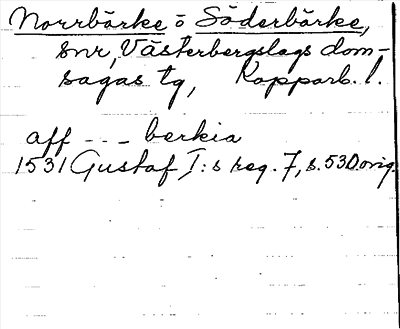 Norrbärke o Söderbärke,
snr, Västerbergslags dom-
sagas tg, Kopparb. l.
aff - - - berkia
1531 Gustaf I:s reg. 7, s. 530 orig.